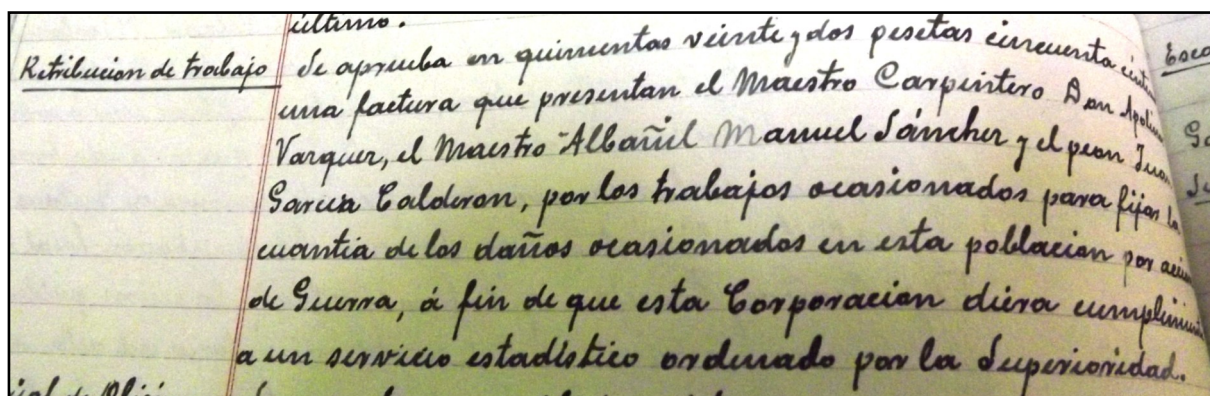 último.
Retribucion de trabajo
Se aprueba en quinientas veinte y dos pesetas cincuenta
una factura que presentan el Maestro Carpintero Don
Varquer, el Maestro Albañil Manuel Sáncher y el peon Juan
Garcia Calderon, por los trabajos ocasionados para fijar la
cuantia de los daños ocasionados en esta poblacion por
de Guerra, á fin de que esta Corporacion diera
a un servicio estadístico ordenado por la Superioridad.